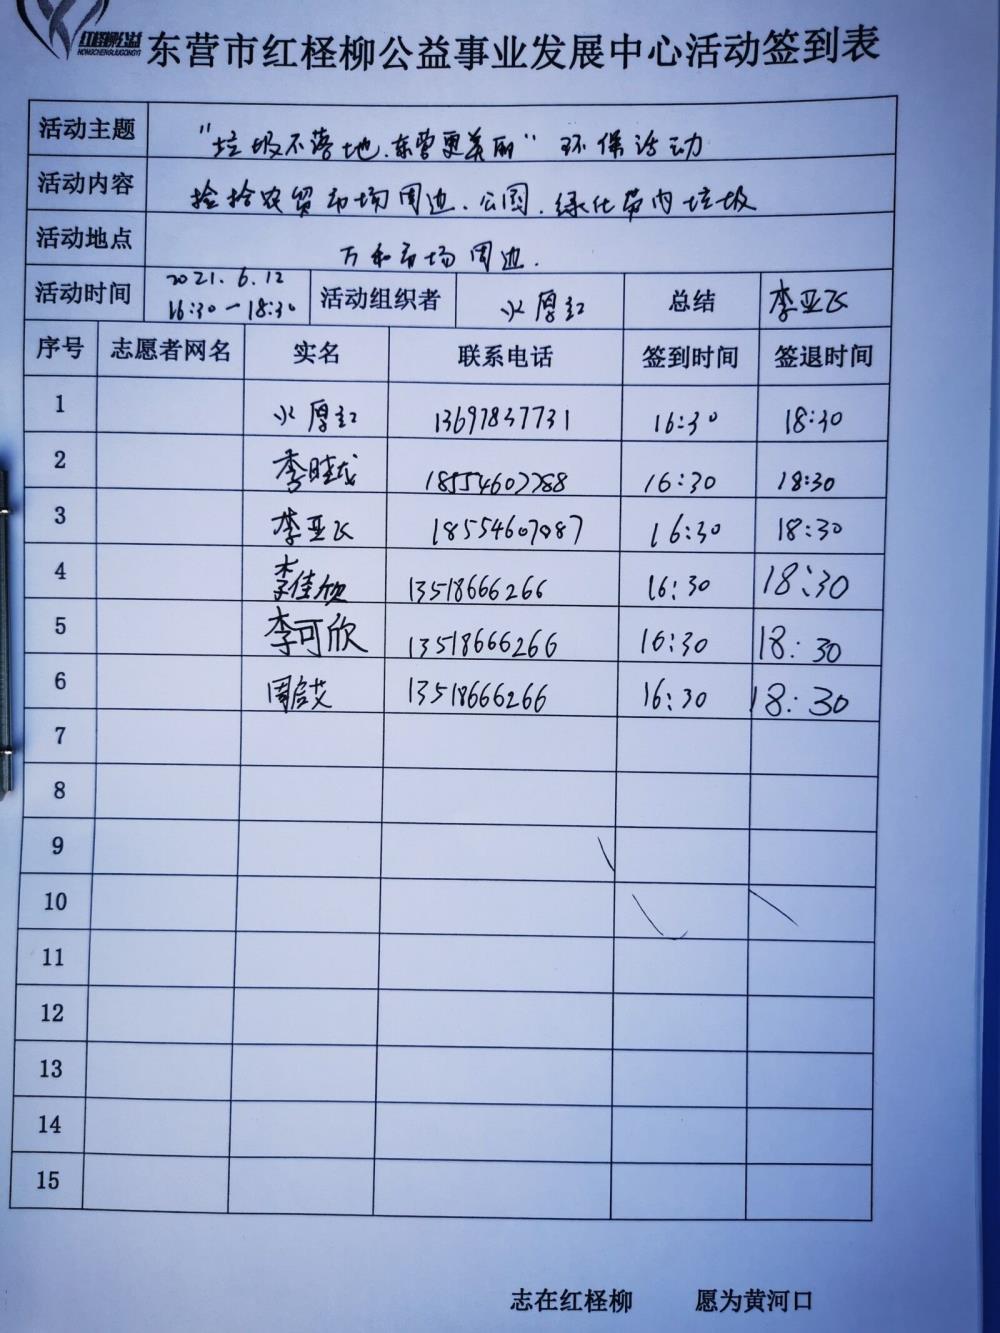 红柽柳公益
HONGCHENGLIUGONGYI
东营市红柽柳公益事业发展中心活动签到表
活动主题 "垃圾不落地.东营更美丽" 环保活动
活动内容 捡拾农贸市场周边.公园.绿化带内垃圾
活动地点 万和市场周边.
活动时间 2021.6.12 16:30—18:30 活动组织者 火厚红 总结 李亚飞
序号 志愿者网名 实名 联系电话 签到时间 签退时间
1 火厚红 13697837731 16:30 18:30
2 李 16:30 18:30
3 李亚飞 18554607087 16:30 18:30
4 李佳欣 13518666266 16:30 18:30
5 李可欣 13518666266 16:30 18:30
6 周启艾 13518666266 16:30 18:30
7
8
9
10
11
12
13
14
15
志在红柽柳 愿为黄河口